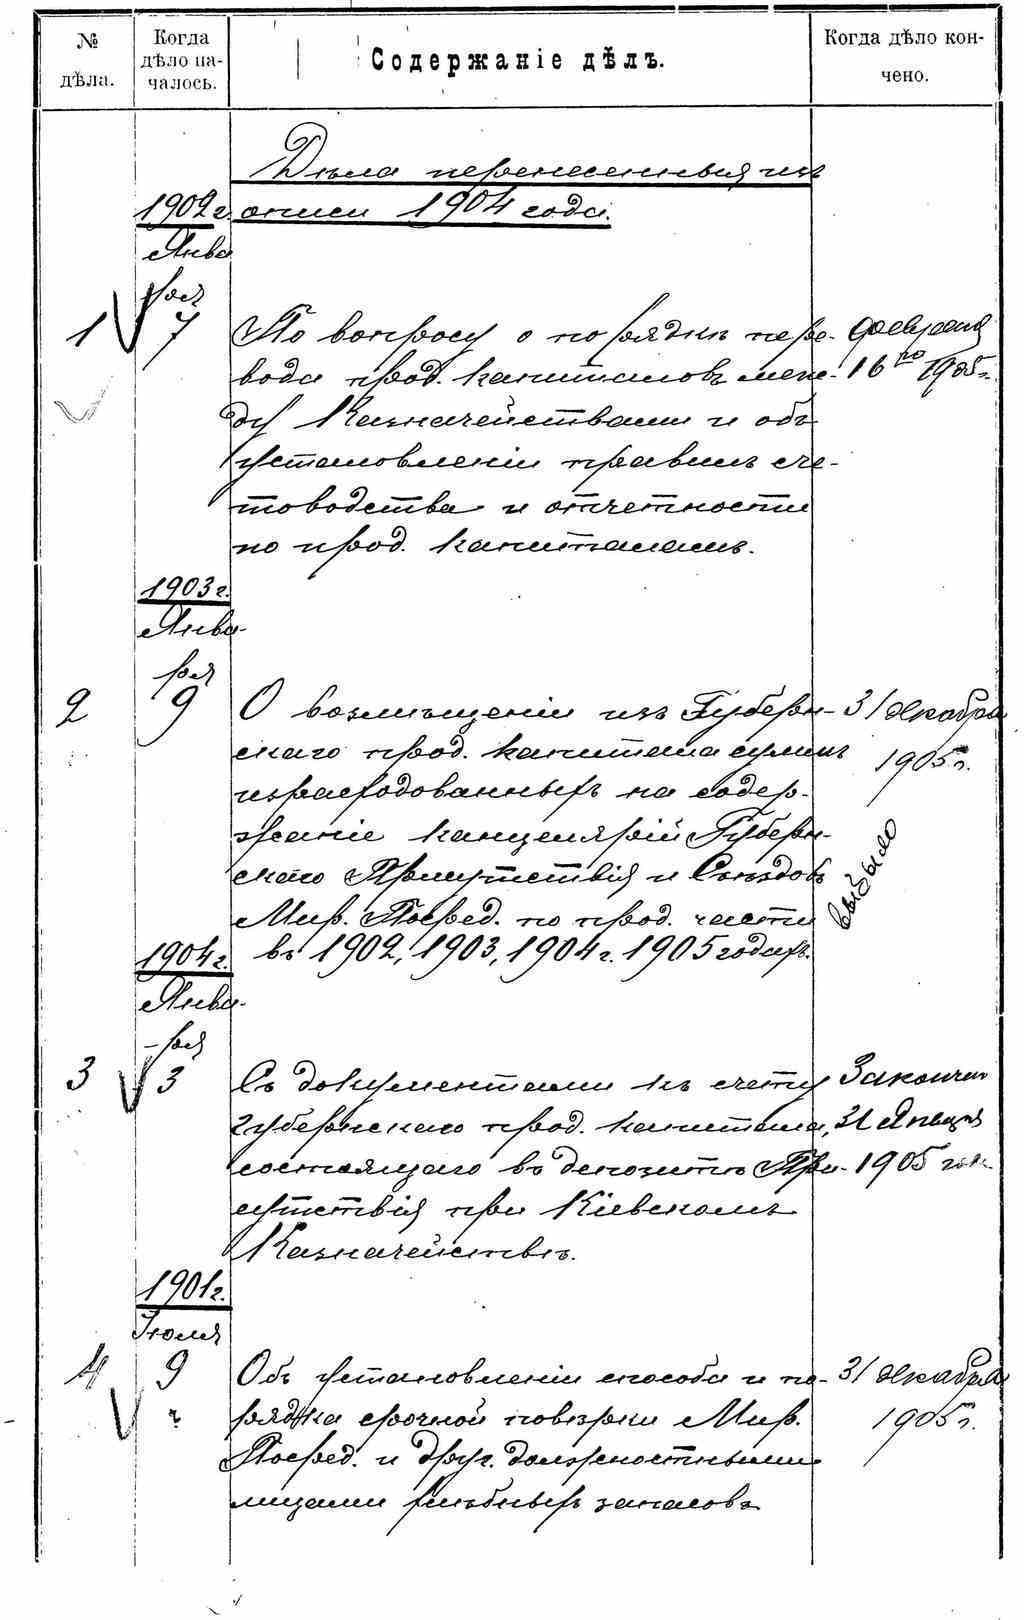 № дѣла.
Когда дѣло началось.
Содержаніе дѣлъ.
Когда дѣло кончено.
Дѣла перенесенныя изъ
1902 г. описи 1904 года.
Января
1 7 По вопросу о порядкѣ пере- февраля
вода прод. капиталовъ меж- 16го 1905 г.
ду Казначействами и объ
установленіи правилъ сче-
товодства и отчетности
по прод. капиталамъ.
1903 г.
Янва-
ря
2 9 О возмѣщеніи изъ Губерн- 31 декабря
скаго прод. капитала суммъ 1905 г.
израсходованныхъ на содер-
жаніе канцелярій Губерн-
скаго Присутствія и Съѣздовъ
Мир. Посред. по прод. части
выбыло
1904 г. въ 1902, 1903, 1904 г. 1905 годахъ.
Янва-
-ря
3 3 Съ документами къ счету Закончен
губернскаго прод. капитала, 31 Января
состоящаго въ депозитѣ При- 1905 года
сутствія при Кіевскомъ
Казначействѣ.
1901 г.
Іюля
4 9 Объ установленіи способа и по- 31 декабря
рядка срочной повѣрки Мир. 1905 г.
Посред. и друг. должностными
лицами хлѣбныхъ запасовъ